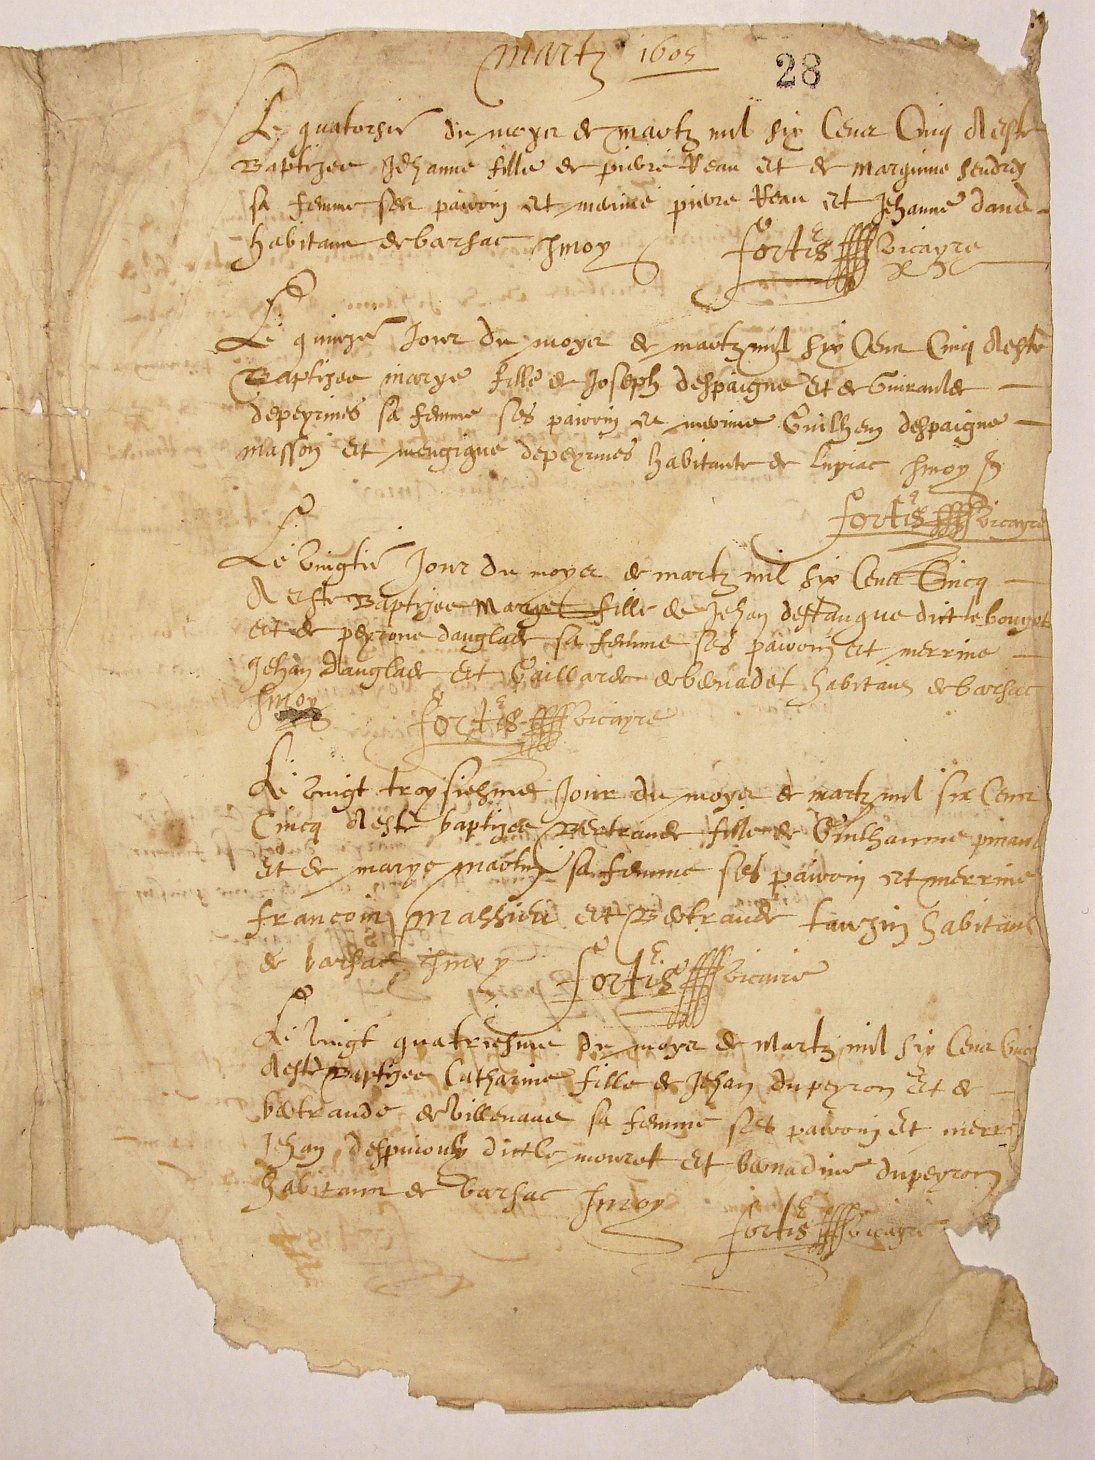 Martz 1605
28
Le quatorsie du moys de martz mil six Cens Cinq A este
Baptizee Jehanne fille de pierre Reau et de marguine
sa femme son parrin et merine pierre Reau et Jehanne
habitans de barsac p moy fortis vicayre
Le quinze Jour du moys de martz mil six Cens Cinq A este
Baptizee marye fille de Joseph despaigne et de Guiraulde
depeyrines sa femme ses parrin et merine Guilhem despaigne
masson et mengigne depeyrines habitante de Lupiac p moy
fortis vicayre
Le vingtie Jour du moys de martz mil six Cens Cincq
A este Baptizee Marye fille de Jehan destangue dict le bouyot
et de peyrone danglade sa femme ses parrin et merrine
Jehan danglade et Gaillarde debernadet habitans de barsac
p moy fortis vicayre
Le vingt troysiesme Jour du moys de martz mil six Cens
Cincq A este baptizee Bertrande fille de Guilhaume pinau
et de marye martin sa femme ses parrin et merrine
francoin Massieu et Bertrande tauzin habitans
de barsac p moy fortis vicaire
Le vingt quatriesme du moys de Martz mil six Cens Cincq
A este Baptizee Catharine fille de Jehan dupeyron Et de
bertrande de villenave sa femme ses parrin Et
Jehan dict le mouret et bernadine dupeyron
habitans de barsac p moy
fortis vicayre